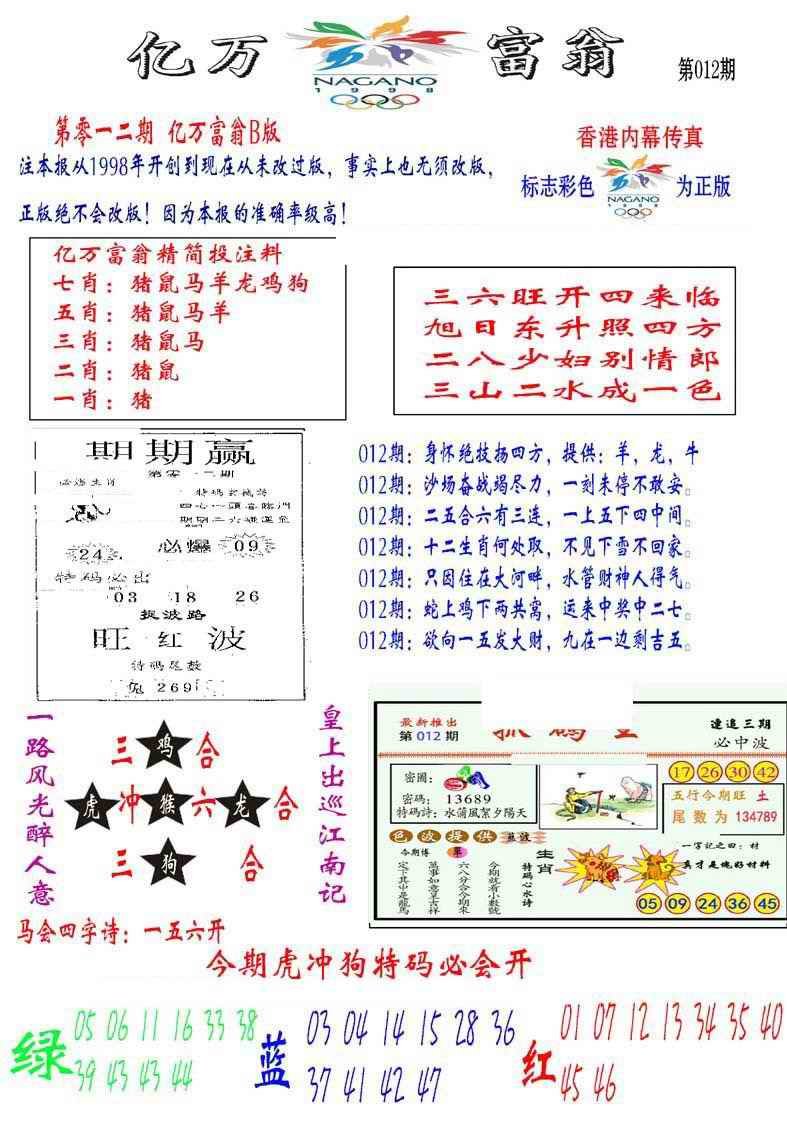 亿万富翁
NAGANO
1998
第012期
第零一二期 亿万富翁B版
香港内幕传真
注本报从1998年开创到现在从未改过版，事实上也无须改版，
正版绝不会改版！因为本报的准确率级高！
标志彩色
NAGANO
1998
为正版
亿万富翁精简投注料
七肖：猪鼠马羊龙鸡狗
五肖：猪鼠马羊
三肖：猪鼠马
二肖：猪鼠
一肖：猪
三六旺开四来临
旭日东升照四方
二八少妇别情郎
三山二水成一色
期期赢
必爆
24
09
特码必出
03 18 26
捉波路
旺红波
特码尾数
兔269
012期：身怀绝技扬四方，提供：羊，龙，牛
012期：沙场奋战竭尽力，一刻未停不敢安。
012期：二五合六有三连，一上五下四中间。
012期：十二生肖何处取，不见下雪不回家。
012期：只因住在大河畔，水管财神人得气。
012期：蛇上鸡下两共窝，运来中奖中二七。
012期：欲向一五发大财，九在一边剩吉五。
一路风光醉人意
三鸡合
虎冲猴六龙合
三狗合
皇上出巡江南记
最新推出
第012期
連追三期
必中波
密圖：
密碼：13689
特碼詩：水蒲風絮夕陽天
17 26 30 42
五行今期旺 土
尾数为 134789
色波提供 藍波
今期博 單
定下其中是龍馬
萬事如意呈吉祥
六八分合今期來
今期就看小數號
特碼心水诗
生肖
一字记之曰：材
真才是塊好材料
05 09 24 36 45
马会四字诗：一五六开
今期虎冲狗特码必会开
绿
05 06 11 16 33 38
39 43 43 44
蓝
03 04 14 15 28 36
37 41 42 47
红
01 07 12 13 34 35 40
45 46